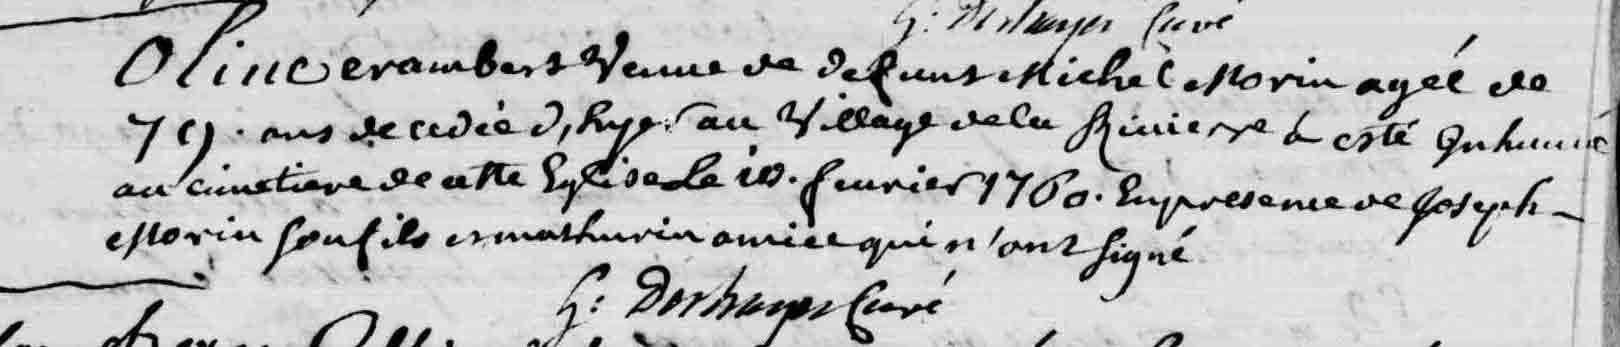 G: Deshayes Curé
Olive erambert Veuue de defunt Michel Morin ageé de
79. ans decedée d'hyer au Village de la Riuierre a esté Inhumé
au cimetiere de cette Eglise Le 10. feurier 1760. En presence de Joseph
Morin son fils et mathurin amice qui n'ont signé
G: Deshayes Curé